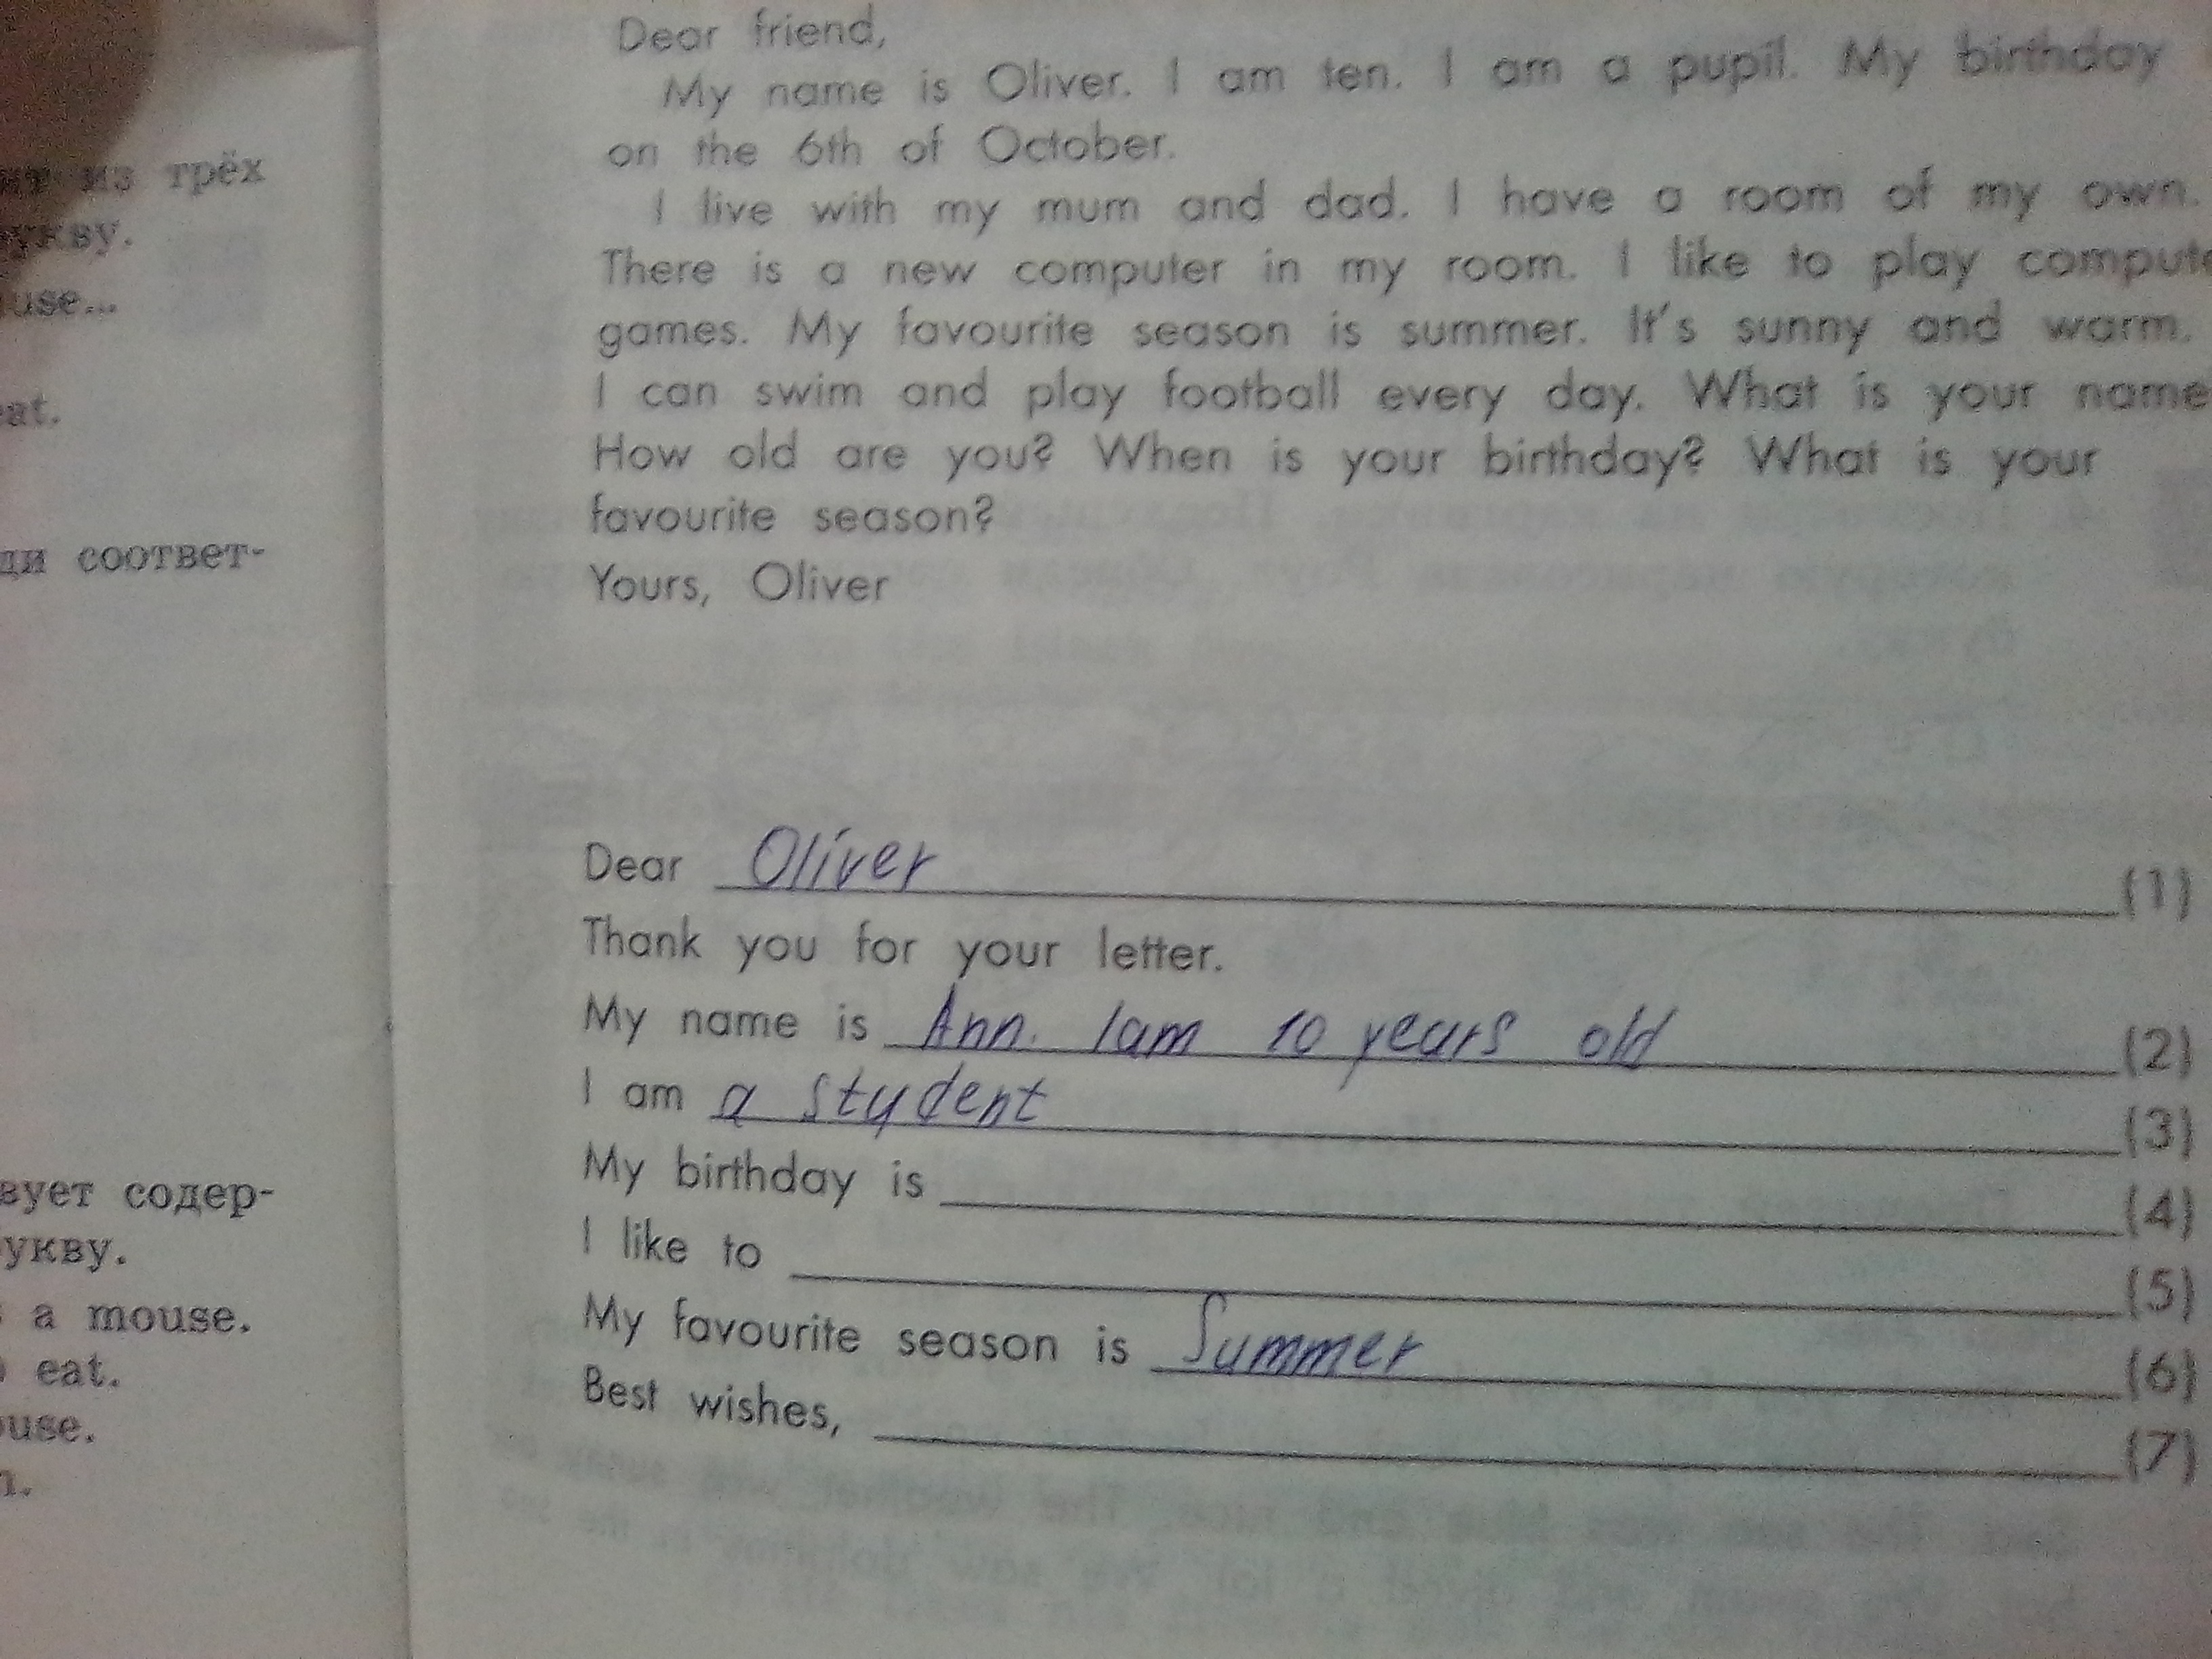 Dear friend,
My name is Oliver. I am ten. I am a pupil. My birthday
on the 6th of October.
I live with my mum and dad. I have a room of my own.
There is a new computer in my room. I like to play compute
games. My favourite season is summer. It's sunny and warm.
I can swim and play football every day. What is your name
How old are you? When is your birthday? What is your
favourite season?
Yours, Oliver
из трёх
укву.
use...
eat.
ди соответ-
вует содер-
укву.
a mouse.
eat.
ouse.
Dear Oliver (1)
Thank you for your letter.
My name is Ann. I am 10 years old (2)
I am a student (3)
My birthday is (4)
I like to (5)
My favourite season is Summer (6)
Best wishes, (7)